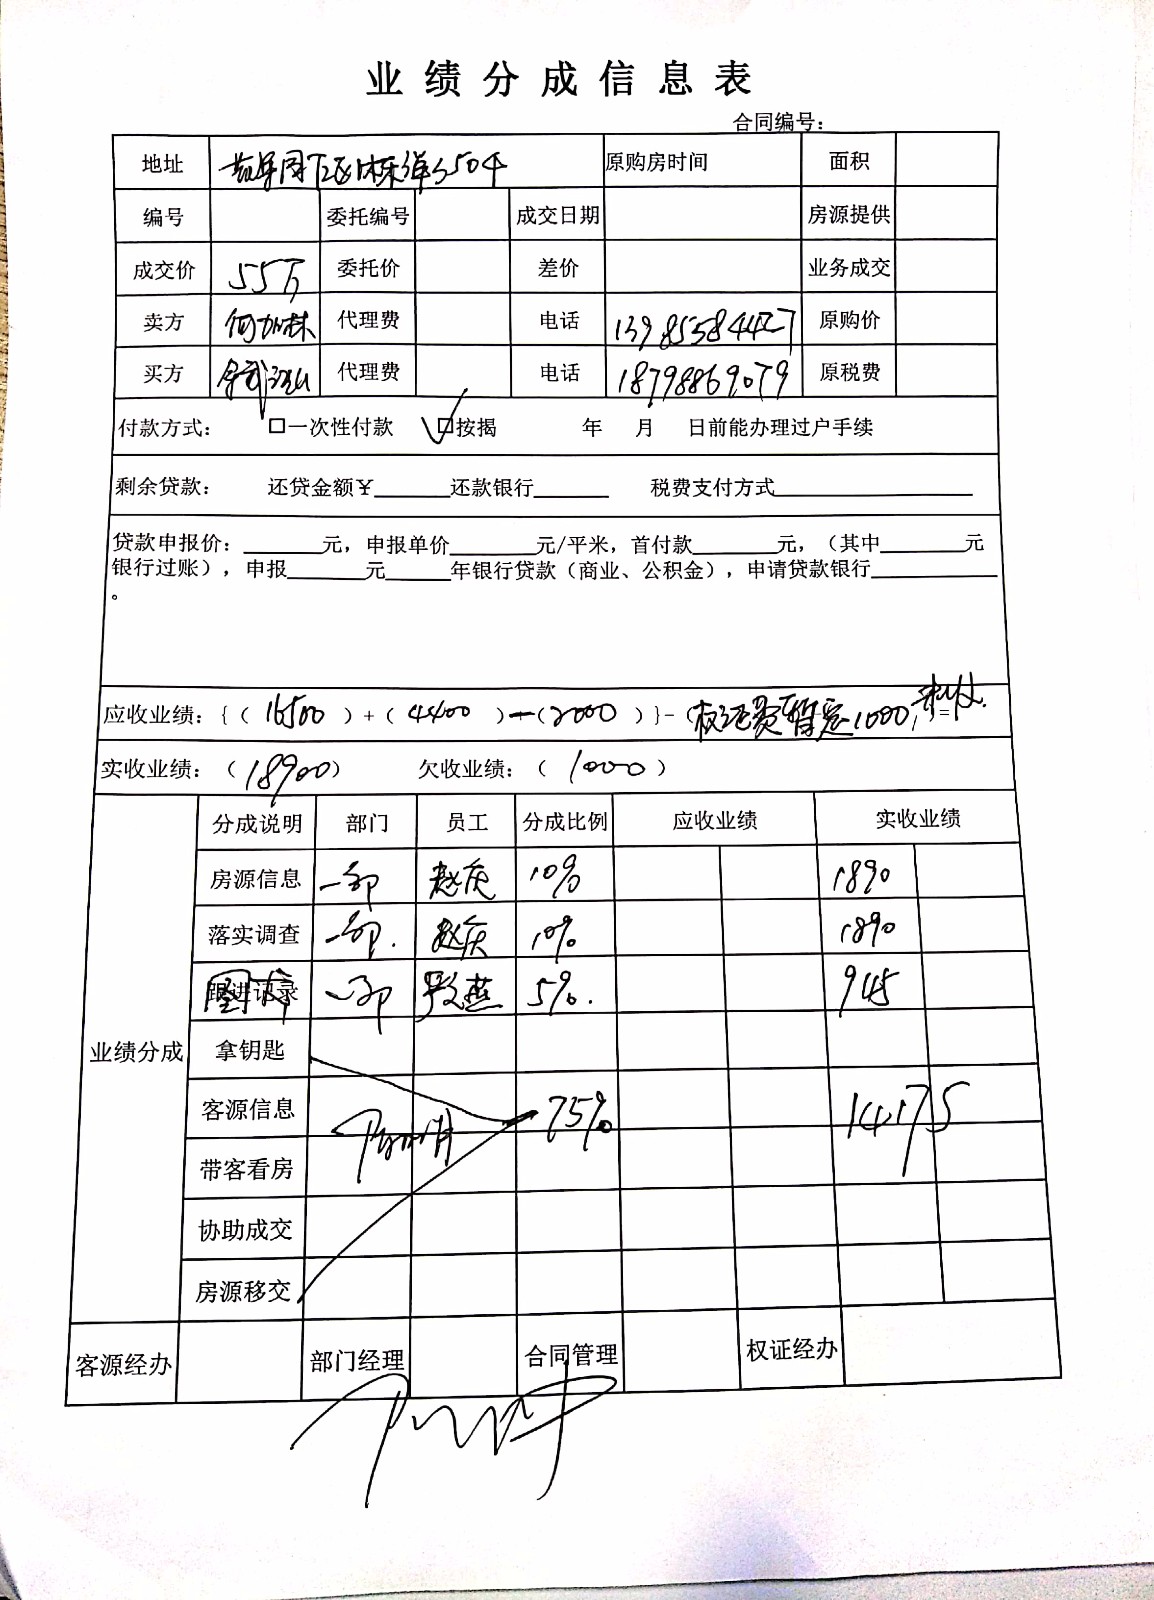 业绩分成信息表
合同编号：
地址 原购房时间 面积
编号 委托编号 成交日期 房源提供
成交价 55万 委托价 差价 业务成交
卖方 何加林 代理费 电话 13985584427 原购价
买方 代理费 电话 18798869079 原税费
付款方式： □一次性付款 □按揭 年 月 日前能办理过户手续
剩余贷款： 还贷金额￥______还款银行______ 税费支付方式______
贷款申报价：______元，申报单价______元/平米，首付款______元，（其中______元
银行过账），申报______元______年银行贷款（商业、公积金），申请贷款银行______
。
应收业绩：{（ 16500 ）+（ 4400 ）-（ 2000 ）}-（ 权证费暂定1000，未收 =
实收业绩：（18900） 欠收业绩：（ 1000 ）
分成说明 部门 员工 分成比例 应收业绩 实收业绩
房源信息 一部 赵庆 10% 1890
落实调查 一部. 赵庆 10% 1890
跟进记录 一部 燕 5%. 945
业绩分成
拿钥匙
客源信息 75% 14175
带客看房
协助成交
房源移交
客源经办 部门经理 合同管理 权证经办